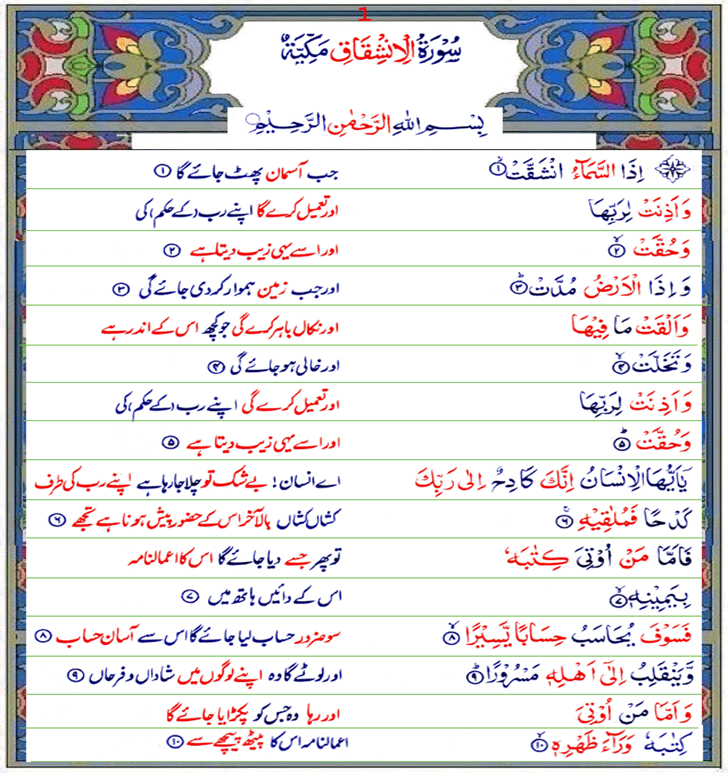 1
سُوْرَةُ الْاِنْشِقَاقِ مَكِّيَّةٌ
بِسْمِ اللهِ الرَّحْمٰنِ الرَّحِيْمِ
اِذَا السَّمَآءُ انْشَقَّتْۙ ۱ جب آسمان پھٹ جائے گا ۱
وَاَذِنَتْ لِرَبِّهَا اور تعمیل کرے گا اپنے رب (کے حکم) کی
وَحُقَّتْۙ ۲ اور اسے یہی زیب دیتا ہے ۲
وَاِذَا الْاَرْضُ مُدَّتْۙ ۳ اور جب زمین ہموار کردی جائے گی ۳
وَاَلْقَتْ مَا فِيْهَا اور نکال باہر کرے گی جو کچھ اس کے اندر ہے
وَتَخَلَّتْۙ ۴ اور خالی ہو جائے گی ۴
وَاَذِنَتْ لِرَبِّهَا اور تعمیل کرے گی اپنے رب (کے حکم) کی
وَحُقَّتْؕ ۵ اور اسے یہی زیب دیتا ہے ۵
يٰۤاَيُّهَا الْاِنْسَانُ اِنَّكَ كَادِحٌ اِلٰى رَبِّكَ اے انسان! بے شک تو چلا جا رہا ہے اپنے رب کی طرف
كَدْحًا فَمُلٰقِيْهِۚ ۶ کشاں کشاں بالآخر اس کے حضور پیش ہونا ہے تجھے ۶
فَاَمَّا مَنْ اُوْتِىَ كِتٰبَهٗ تو پھر جسے دیا جائے گا اس کا اعمالنامہ
بِيَمِيْنِهٖۙ ۷ اس کے دائیں ہاتھ میں ۷
فَسَوْفَ يُحَاسَبُ حِسَابًا يَّسِيْرًاۙ ۸ سو ضرور حساب لیا جائے گا اس سے آسان حساب ۸
وَّيَنْقَلِبُ اِلٰٓى اَهْلِهٖ مَسْرُوْرًاؕ ۹ اور لوٹے گا وہ اپنے لوگوں میں شاداں و فرحاں ۹
وَاَمَّا مَنْ اُوْتِىَ اور رہا وہ جس کو پکڑایا جائے گا
كِتٰبَهٗ وَرَآءَ ظَهْرِهٖۙ ۱۰ اعمالنامہ اس کا پیٹھ پیچھے سے ۱۰